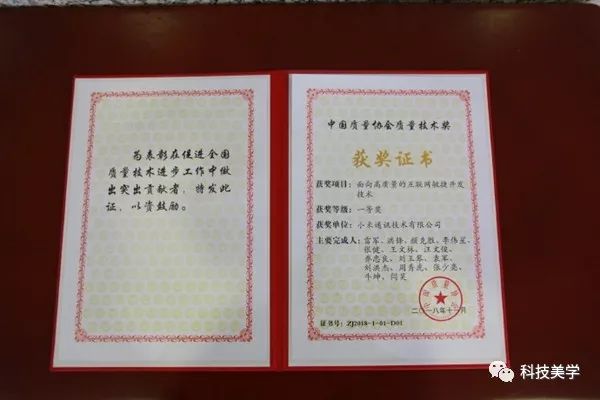 为表彰在促进全国
质量技术进步工作中做
出突出贡献者，特发此
证，以资鼓励。
中国质量协会质量技术奖
获奖证书
获奖项目：面向高质量的互联网敏捷开发
技术
获奖等级：一等奖
获奖单位：小米通讯技术有限公司
主要完成人：雷军、洪锋、颜克胜、李伟星、
张健、王文林、汪文俊、
乔忠良、刘玉琴、袁军、
刘洪杰、周秀虎、张少亮、
牛坤、闫昊
中国质量协会
二〇一八年十一月
证书号：ZJ2018-1-01-D01
科技美学